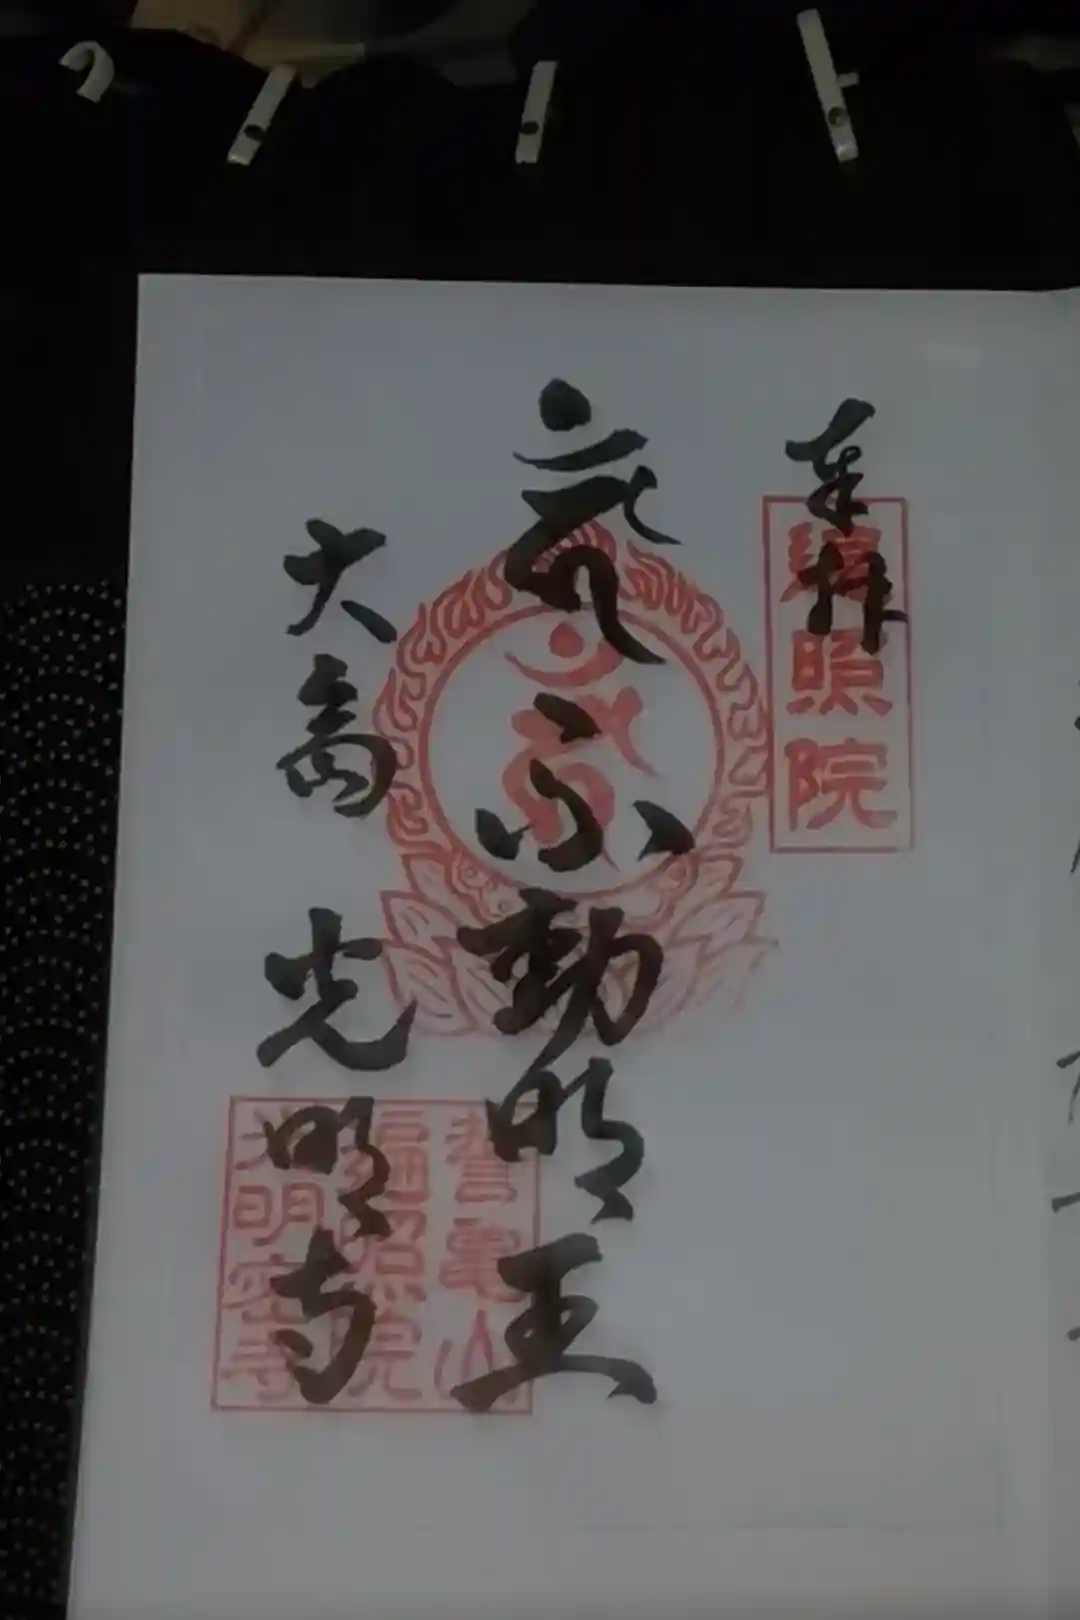 奉拝
遍照院
不動明王
大
光明寺
山
遍照院
光明 寺